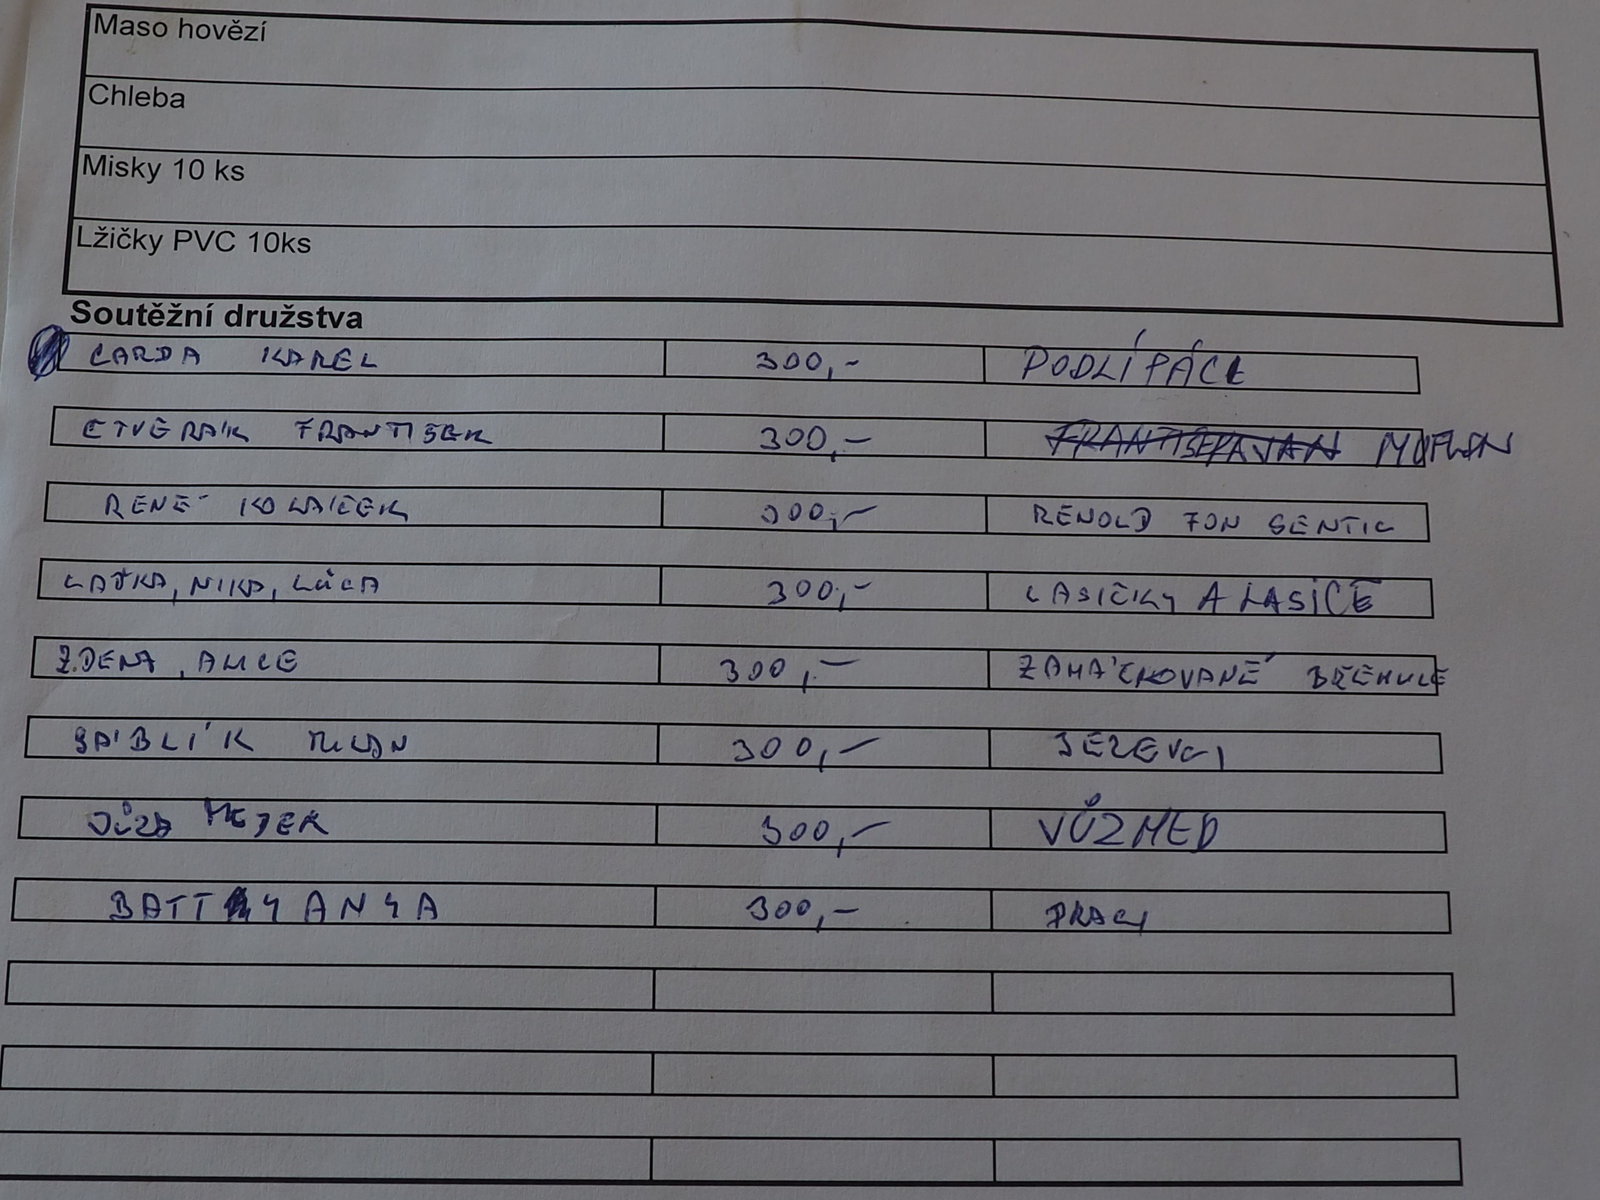 Maso hovězí
Chleba
Misky 10 ks
Lžičky PVC 10ks
Soutěžní družstva
CARDA KAREL 300,- PODLÍPÁCI
CTVERÁK FRANTISEK 300,- MUFLON
RENÉ KOLAICEK 300,- RENOLD FON SENTIC
LAĎKA, NIKA, LÚCA 300,- LASIČKY A LASIČE
ZDENA, ALICE 300,- ZAMÁČKOVANÉ BŘEHULE
BÁBLÍK MILAN 300,- JEZEVCI
MEJER 300,- VŮZMED
BATTYANYA 300,- PRACI